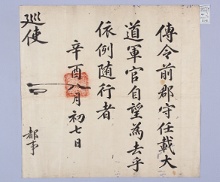 傳令前郡守任載大
道軍官自望為去乎
依例随行者
辛酉八月初七日
巡使
都事